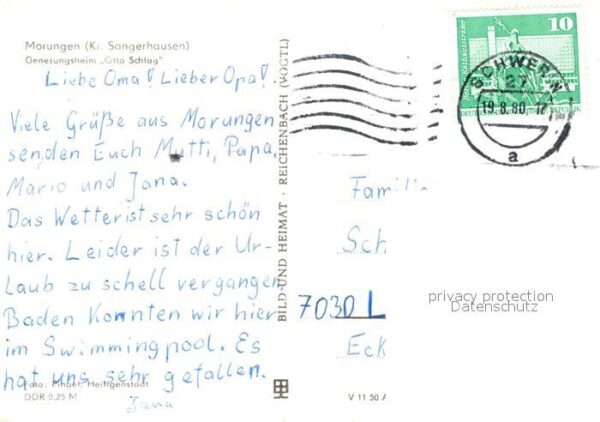 Morungen (Kr. Sangerhausen)
Genesungsheim „Otto Schlag"
Liebe Oma! Lieber Opa!
Viele Grüße aus Morungen
senden Euch Mutti, Papa,
Mario und Jana.
Das Wetter ist sehr schön
hier. Leider ist der Ur-
laub zu schell vergangen
Baden Konnten wir hier
im Swimmingpool. Es
hat uns sehr gefallen.
Jana
Heiligenstadt
DDR 0,25 M
BILD UND HEIMAT · REICHENBACH (VOGTL)
V 11 50 A
10
SCHWERIN
27
19.8.80.-17
a
Famili
Sch
7030 L
Eck
privacy protection
Datenschutz